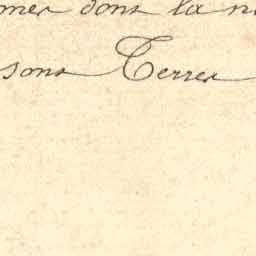 mes dont la n
sont Terres